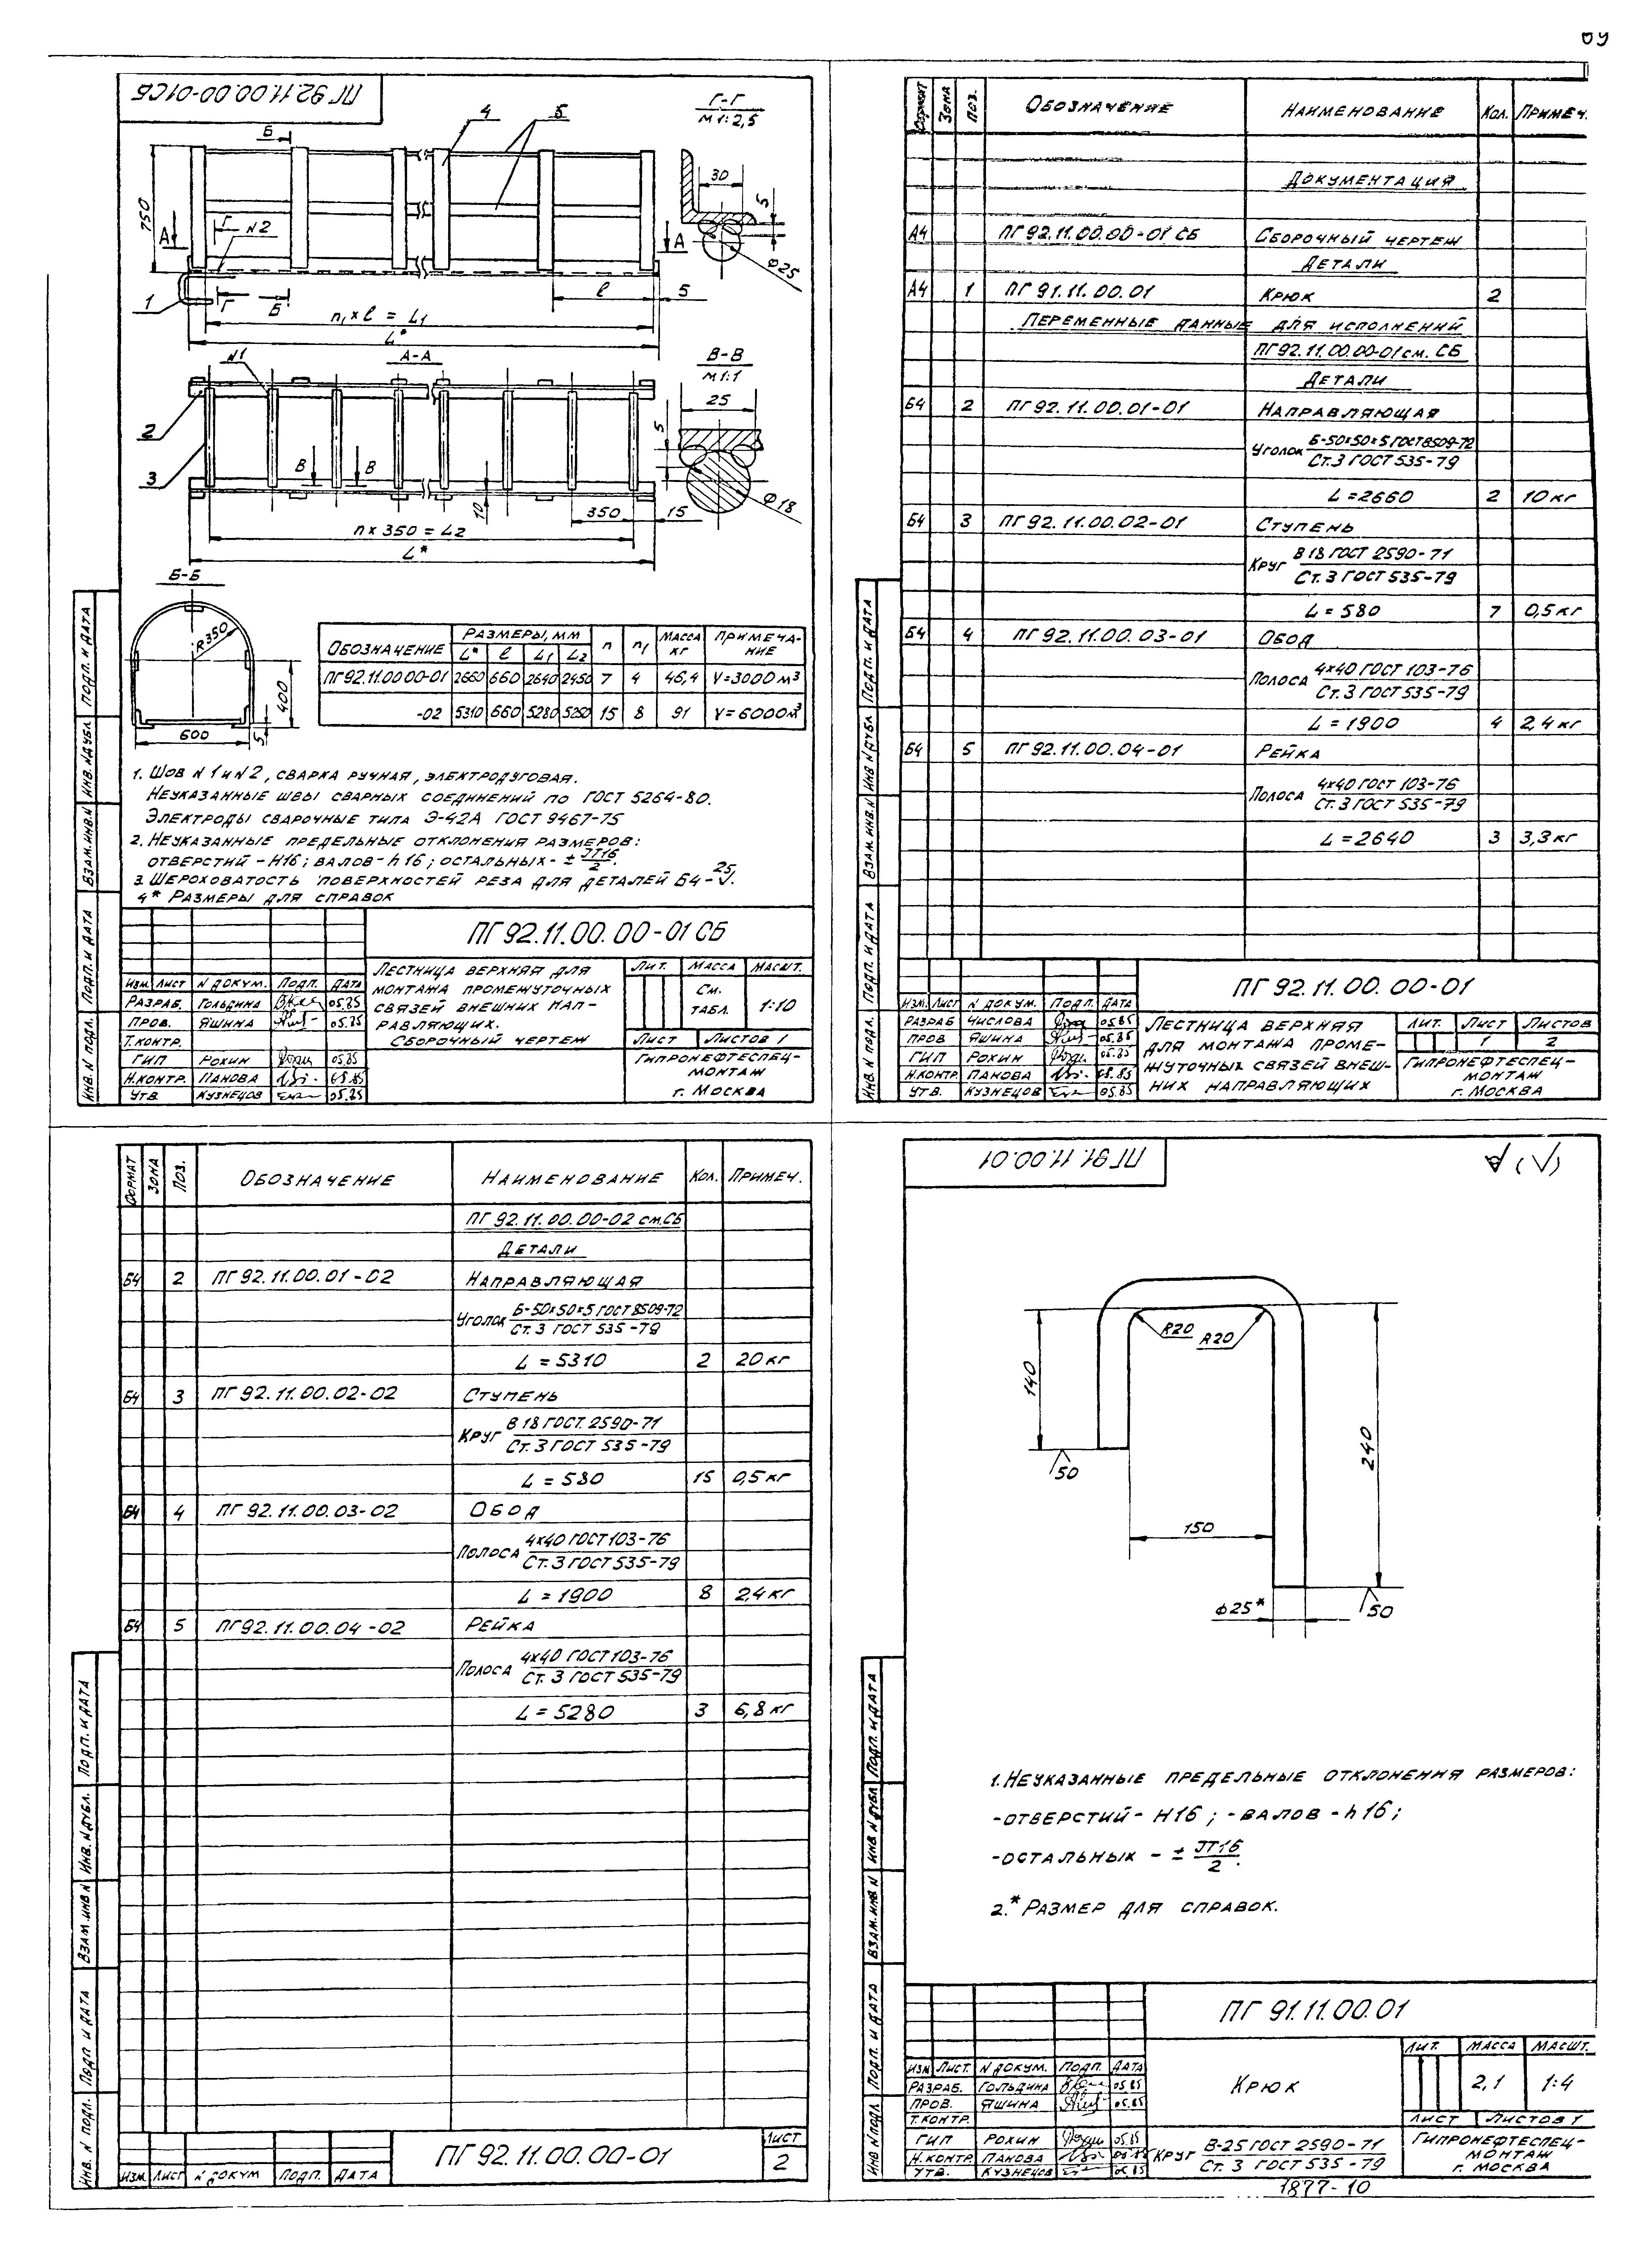 69
ПГ 92.11.00.00-01СБ
Г-Г
М 1:2,5
Б
4
5
30
5
750
А
Г
N2
А
Ф25
1
Г
Б
ℓ
5
n₁ x ℓ = L₁
L*
N1
А-А
В-В
М1:1
25
5
2
3
В
В
10
350
15
Ф18
n x 350 = L2
L*
Б-Б
R350
400
600
5
Обозначение
Размеры, мм
n
n₁
Масса кг
Примечание
L*
ℓ
L₁
L₂
ПГ92.11.00.00-01 2660 660 2640 2450 7 4 46,4 V=3000м³
-02 5310 660 5280 5250 15 8 91 V=6000м³
1. Шов N1 и N2, сварка ручная, электродуговая.
Неуказанные швы сварных соединений по ГОСТ 5264-80.
Электроды сварочные типа Э-42А ГОСТ 9467-75
2. Неуказанные предельные отклонения размеров:
отверстий-Н16; валов-h16; остальных-± JT16/2.
3. Шероховатость поверхностей реза для деталей Б4-25√.
4* Размеры для справок
ПГ 92.11.00.00-01 СБ
Лестница верхняя для
монтажа промежуточных
связей внешних нап-
равляющих.
Сборочный чертеж
Лит. Масса Масшт.
См. табл. 1:10
Лист Листов 1
Гипронефтеспец-
монтаж
г. Москва
Изм. Лист N докум. Подп. Дата
Разраб. Гольдина 05.85
Пров. Яшина 05.85
Т.контр.
ГИП Рохин 05.85
Н.контр. Панова 05.85
Утв. Кузнецов 05.85
Инв. N подл. Подп. и дата Взам. инв. N Инв. N дубл. Подп. и дата
Формат Зона Поз. Обозначение Наименование Кол. Примеч.
Документация
А4 ПГ92.11.00.00-01 СБ Сборочный чертеж
Детали
А4 1 ПГ 91.11.00.01 Крюк 2
Переменные данные для исполнений
ПГ92.11.00.00-01 см. СБ
Детали
Б4 2 ПГ92.11.00.01-01 Направляющая
Уголок Б-50x50x5 ГОСТ 8509-72
Ст.3 ГОСТ 535-79
L=2660 2 10кг
Б4 3 ПГ92.11.00.02-01 Ступень
Круг В18 ГОСТ 2590-71
Ст.3 ГОСТ 535-79
L=580 7 0,5кг
Б4 4 ПГ92.11.00.03-01 Обод
Полоса 4x40 ГОСТ 103-76
Ст.3 ГОСТ 535-79
L=1900 4 2,4кг
Б4 5 ПГ92.11.00.04-01 Рейка
Полоса 4x40 ГОСТ 103-76
Ст.3 ГОСТ 535-79
L=2640 3 3,3кг
ПГ 92.11.00.00-01
Изм. Лист N докум. Подп. Дата
Разраб Числова 05.85
Пров Яшина 05.85
ГИП Рохин 05.85
Н.контр. Панова 05.85
Утв. Кузнецов 05.85
Лестница верхняя
для монтажа проме-
жуточных связей внеш-
них направляющих
Лит. Лист Листов
1 2
Гипронефтеспец-
монтаж
г. Москва
Инв. N подл. Подп. и дата Взам. инв. N Инв N дубл Подп. и дата
Формат Зона Поз. Обозначение Наименование Кол. Примеч.
ПГ 92.11.00.00-02 см.СБ
Детали
Б4 2 ПГ 92.11.00.01-02 Направляющая
Уголок Б-50x50x5 ГОСТ 8509-72
Ст.3 ГОСТ 535-79
L=5310 2 20кг
Б4 3 ПГ 92.11.00.02-02 Ступень
Круг В18 ГОСТ. 2590-71
Ст.3 ГОСТ 535-79
L=580 15 0,5кг
Б4 4 ПГ 92.11.00.03-02 Обод
Полоса 4x40 ГОСТ 103-76
Ст.3 ГОСТ 535-79
L=1900 8 2,4кг
Б4 5 ПГ92.11.00.04-02 Рейка
Полоса 4x40 ГОСТ 103-76
Ст.3 ГОСТ 535-79
L=5280 3 6,8кг
Изм. Лист N докум Подп. Дата
ПГ 92.11.00.00-01
Лист
2
Инв. N подл. Подп и дата Взам. инв N Инв. N дубл. Подп. и дата
ПГ 91.11.00.01
(√)
R20
R20
140
50
240
150
ф25*
50
1. Неуказанные предельные отклонения размеров:
-отверстий-Н16; -валов-h16;
-остальных - ± JT16/2.
2.* Размер для справок.
ПГ 91.11.00.01
Крюк
Лит. Масса Масшт.
2,1 1:4
Лист Листов 1
Изм Лист. N докум. Подп. Дата
Разраб. Гольдина 05.85
Пров. Яшина 05.85
Т.контр.
ГИП Рохин 05.85
Н.контр. Панова 05.85
Утв. Кузнецов 05.85
Круг В-25 ГОСТ 2590-71
Ст. 3 ГОСТ 535-79
Гипронефтеспец-
монтаж
г. Москва
Инв N подл Подп. и дата Взам. инв N Инв N дубл Подп. и дата
1877-10